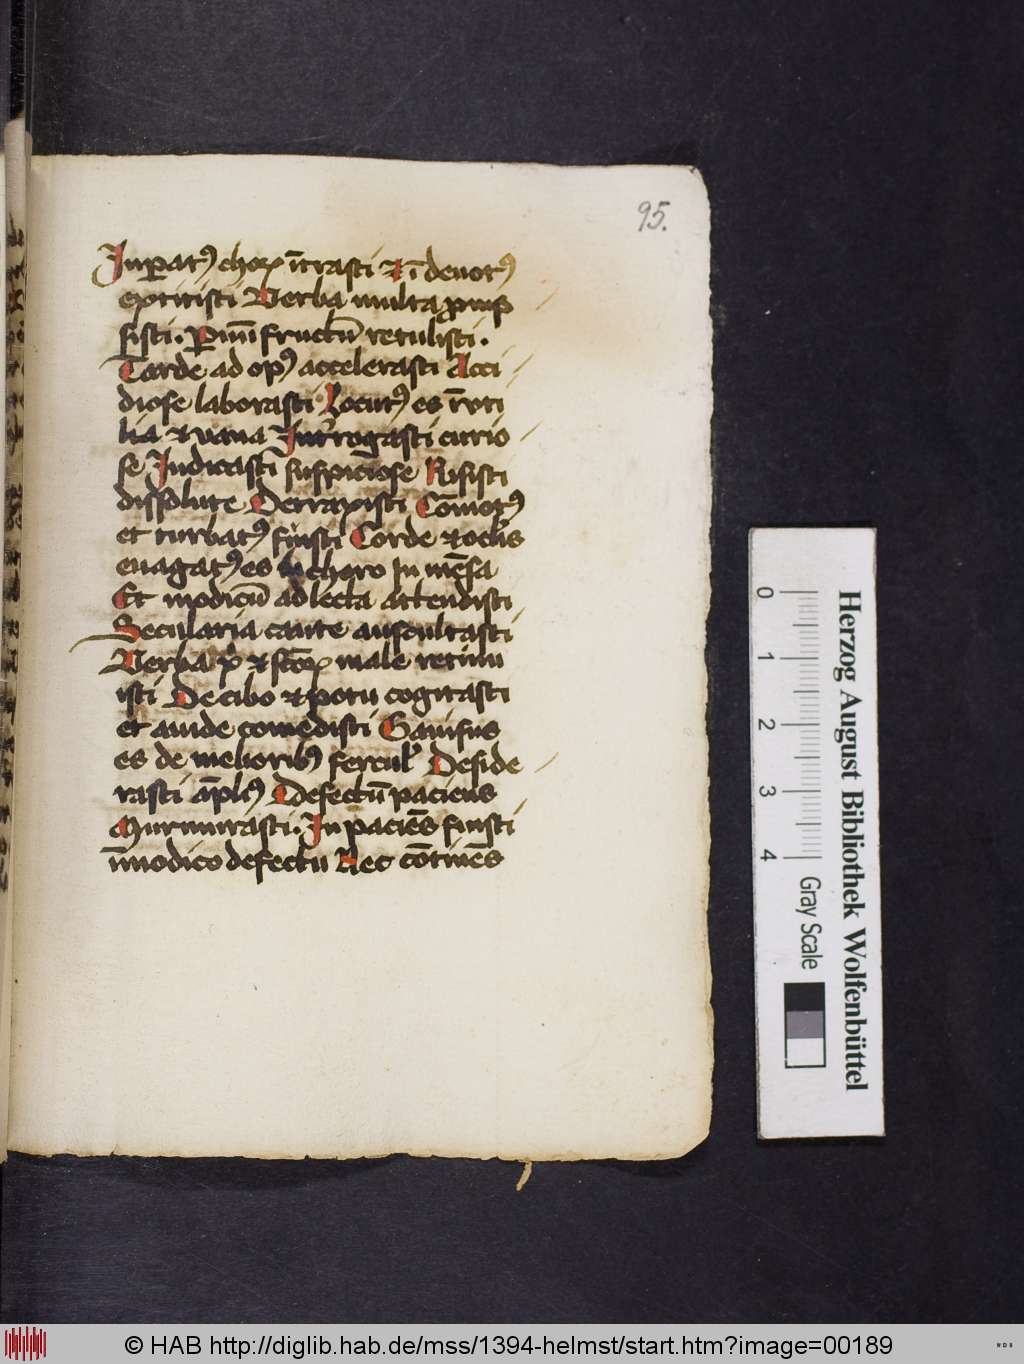 95.
Inp̄atꝰ choꝝ īt̄rasti Et ī deuotꝰ
extitisti Verba multa ꝓmp
sisti. Parū fructū retulisti.
Tarde ad opꝰ accelerasti Acci
diose laborasti Locutꝰ es īvti
lia et vana Int̄rogasti curio
se Iudicasti suspiciose Risisti
dissolute Detraxisti Cōmotꝰ
et turbatꝰ fuisti Corde et oclis
euagatꝰ es In choro In mēsa
Et modicū ad lecta attendisti
Secularia caute auscultasti
Verba et male retinu
isti De cibo et potu cogitasti
et auide comedisti Gauisus
es de melioribꝰ fercul Deside
rasti āplꝰ Defectū paciens
Murmurasti. In paciēs fuisti
īmodico defectu Nec cōtinēs
Herzog August Bibliothek Wolfenbüttel
0 1 2 3 4 Gray Scale
© HAB http://diglib.hab.de/mss/1394-helmst/start.htm?image=00189